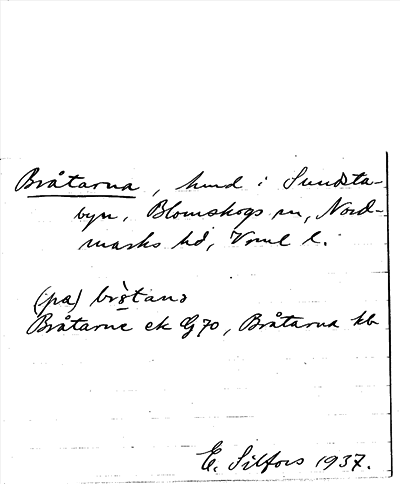 Bråtarna, hmd i Sundsta-
byn, Blomskogs sn, Nord-
marks hd, Vrml l.
(på) bròtanɔ
Bråtarne ek G70, Bråtarna kb
E. Silfors 1937.